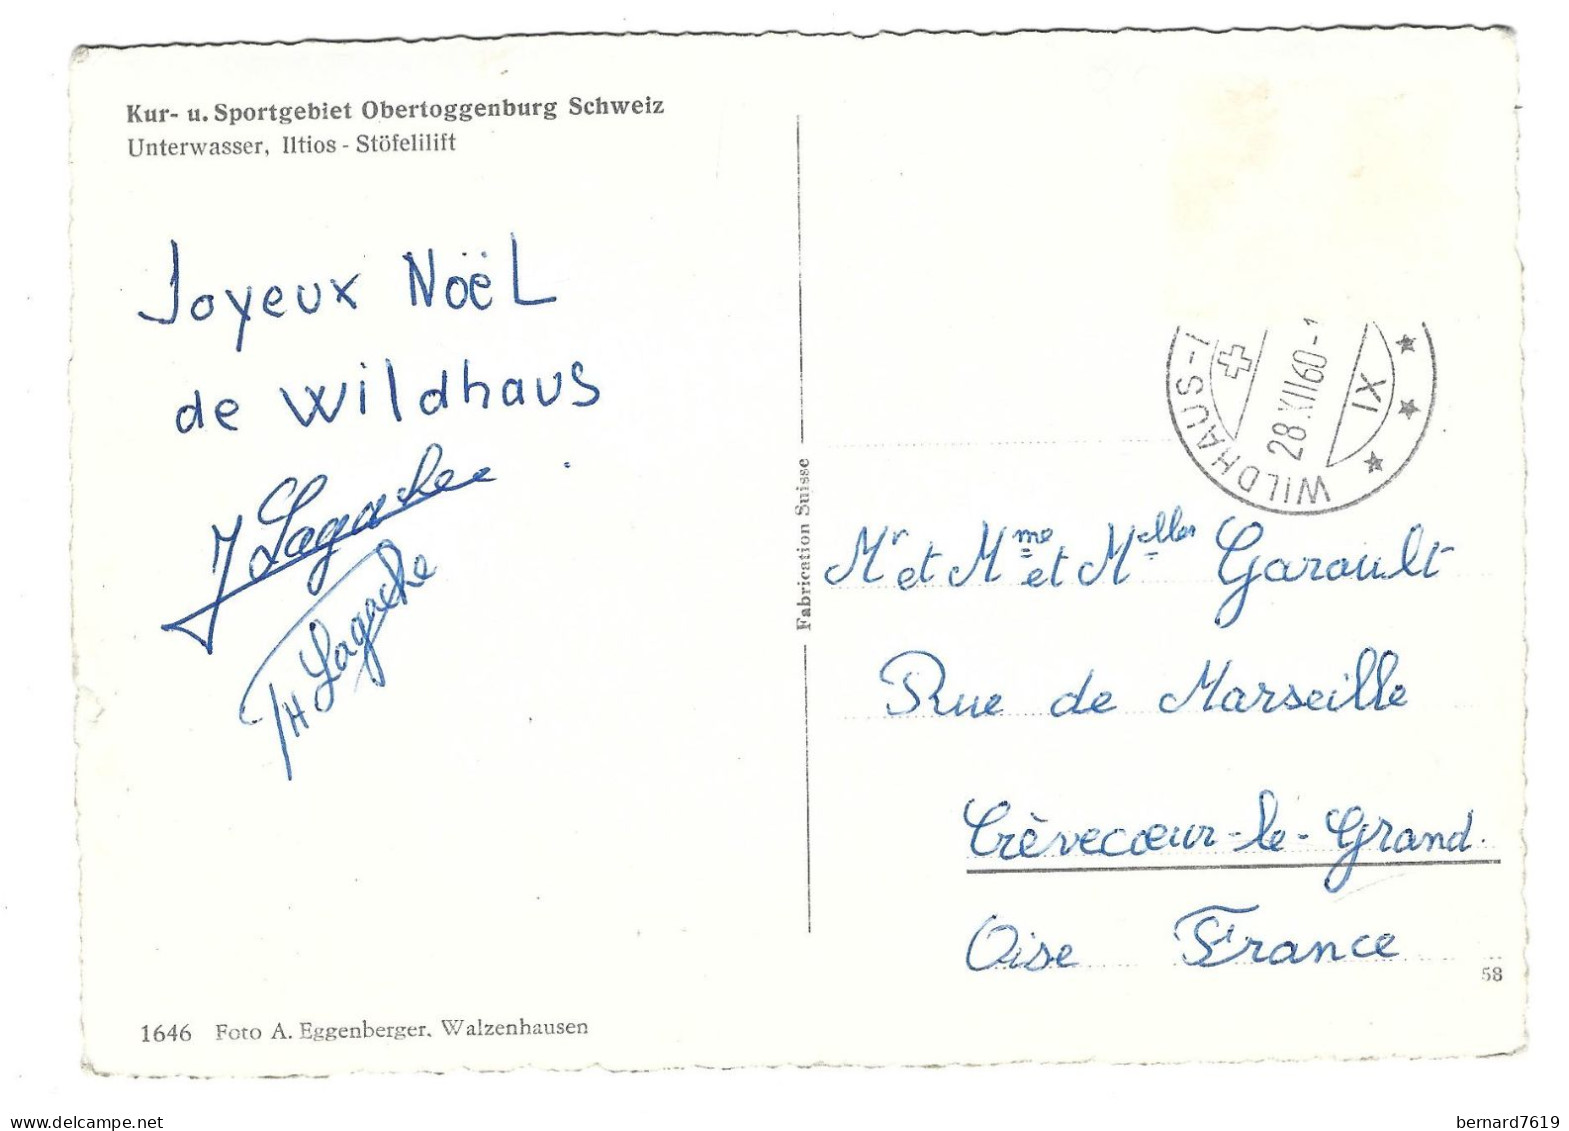 Kur- u. Sportgebiet Obertoggenburg Schweiz
Unterwasser, Iltios - Stöfelilift
Joyeux Noël
de Wildhaus
J Lagache
TH Lagache
1646 Foto A. Eggenberger, Walzenhausen
Fabrication Suisse
WILDHAUS-
28.XII60-1
IX
Mr et Mme et Melles Garault
Rue de Marseille
Crèvecœur-le-Grand.
Oise France
58
bernard7619